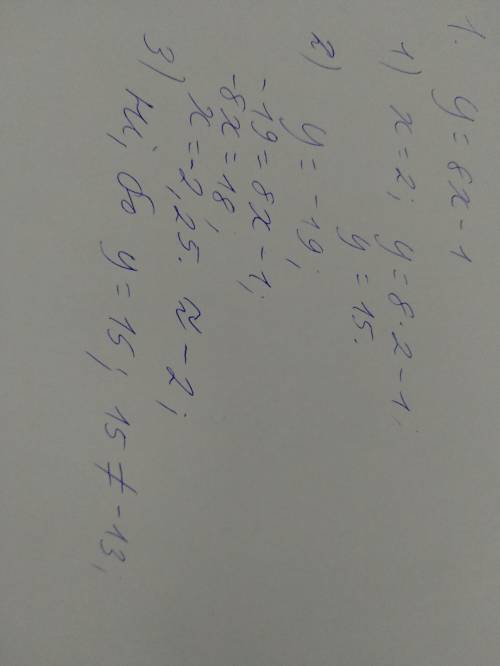 1. y = 8x - 1
1) x = 2; y = 8·2 - 1;
y = 15.
2) y = -19;
-19 = 8x - 1;
-8x = 18;
x = -2,25. ≈ -2;
3) Ні, бо y = 15; 15 ≠ -13;